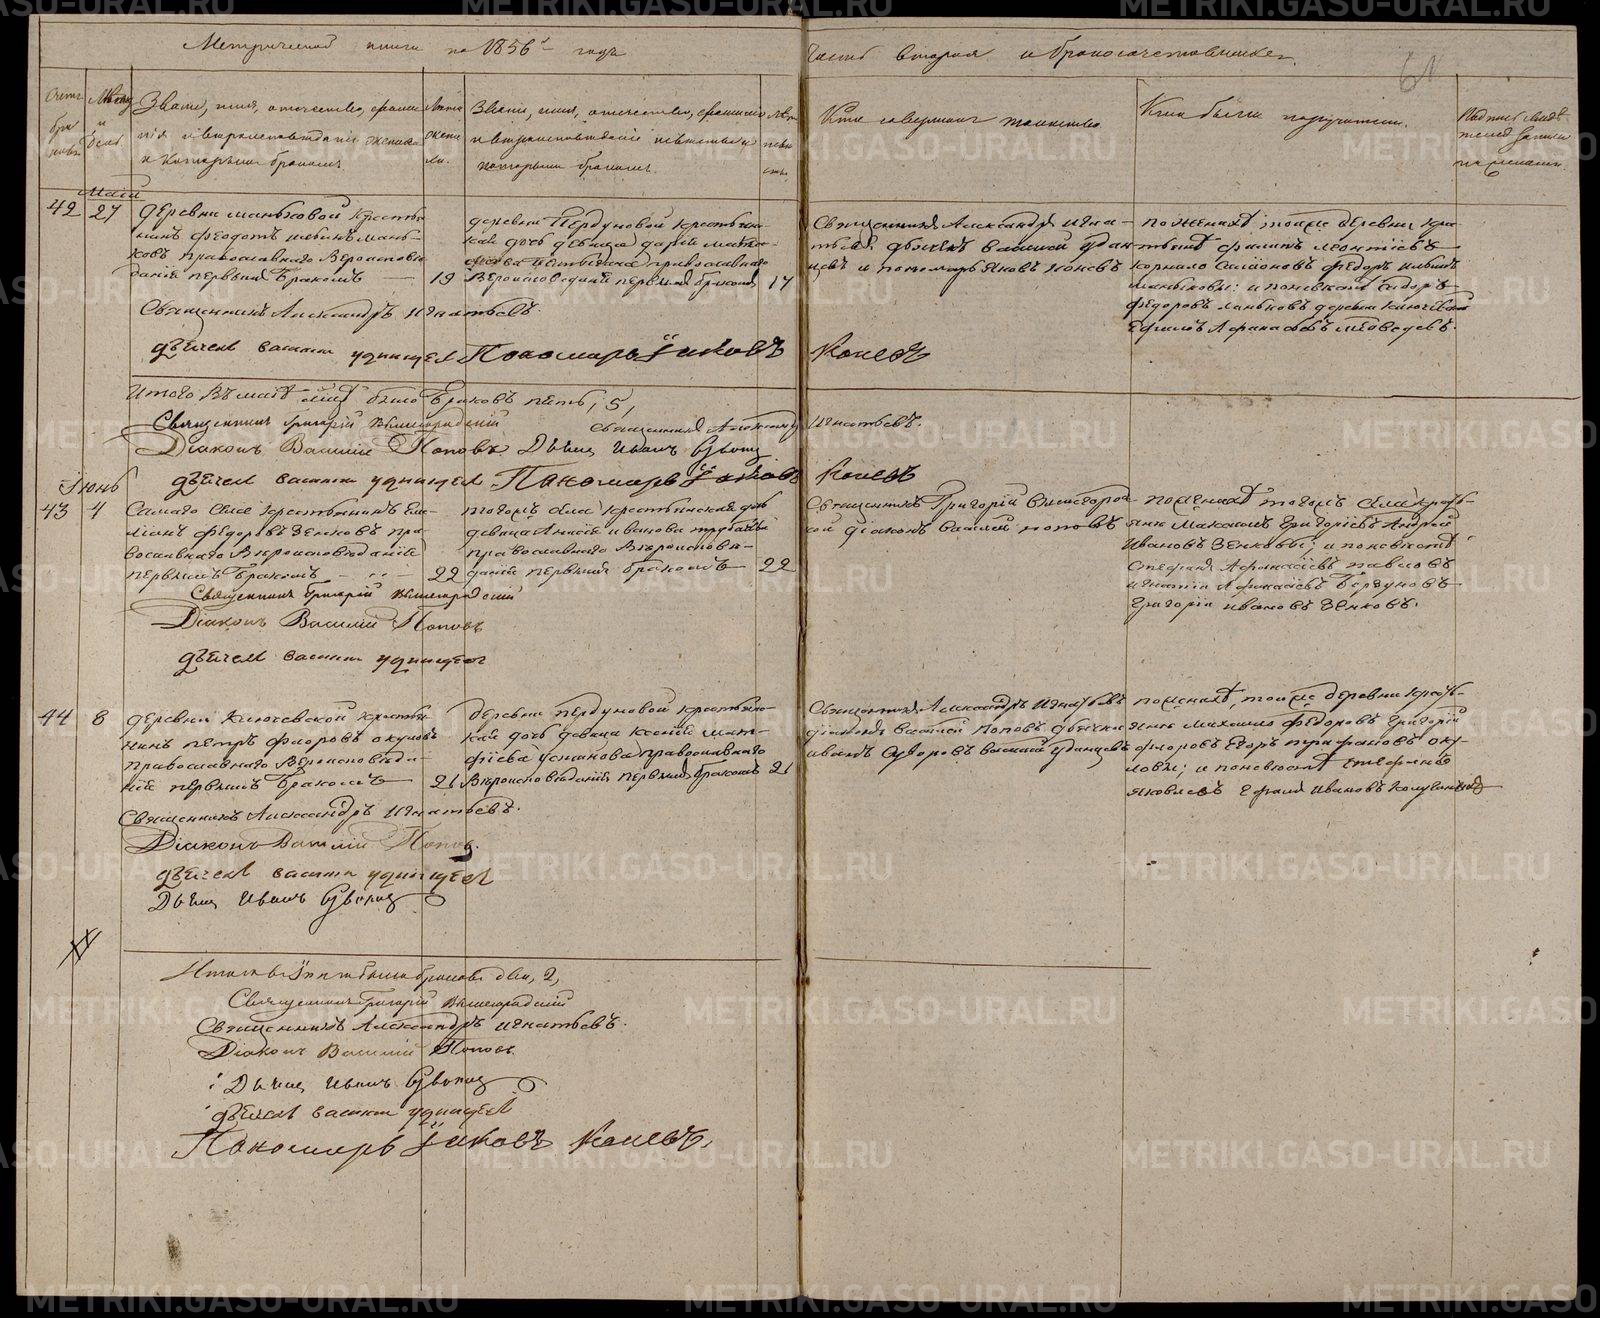 Метрической книги на 1856й годъ
Часть вторая о бракосочетавшихся.
61
Счетъ браковъ
Мѣсяц и день
Званіе, имя, отчество, фамилія и вѣроисповѣданіе жениха и которымъ бракомъ
Лѣта жениха.
Званіе, имя, отчество, фамилія и вѣроисповѣданіе невѣсты и которымъ бракомъ.
Лѣта невѣсты.
Кто совершалъ таинство
Кто были поручители.
Подпись свидѣтелей записи по желанію.
Май
42
27
деревни Маньковой крестья
нинъ Феодотъ
ковъ православнаго Вероисповѣ
данія первымъ бракомъ
19
деревни Пердуновой крестьян
кая дочь девица Дарья
православнаго
Вероисповеданія первымъ бракомъ
17
Священникъ Александръ Игна-
тьевъ дьячекъ Василий Удин
цевъ и пономарь Яковъ Коневъ
по женихѣ: тойже деревни кре
стьяне Филипъ Леонтьевъ
Корнило Симоновъ Федоръ
Маньковы: и по невѣстѣ Сидоръ
Федоровъ Маньковъ деревни Ключевской
Ефимъ Афанасьевъ Медведевъ.
Священникъ Александръ Игнатьевъ.
дьячекъ Василий Удинцевъ Пономарь Іаковъ Коневъ
Итого въ маѣ мцѣ было браковъ пять, 5,
Священникъ Григорій Вышегородскій Священникъ Александръ Игнатьевъ.
Діаконъ Василій Поповъ Дьячец Иванъ Суворов
дьячекъ Василий Удинцевъ Пономарь Іаковъ Коневъ
Іюнь
43
4
Самаго села крестьянинъ Си-
монъ Федоровъ Зенковъ пра
вославнаго Вероисповѣданія
первымъ бракомъ
22
тогожъ села крестьянская дочь
девица Анисія Иванова
православнаго Вероисповѣ-
данія первымъ бракомъ
22
Священникъ Григорій Вышегород
кой діаконъ Василей Поповъ
по женихѣ тогожъ села кресть-
яне Максимъ Григорьевъ Андрей
Ивановъ Зенковы; и по невѣстѣ
Стефанъ Афанасьевъ Павловъ
Игнатій Афанасьевъ
Григорій Ивановъ Зенковъ.
Священникъ Григорій Вышегородскій
Діаконъ Василій Поповъ
дьячекъ Василий Удинцевъ
44
8
деревни Ключевской крестья
нинъ Петръ Флоровъ Окуловъ
православнаго Вероисповѣда-
нія первымъ бракомъ
21
деревни Пердуновой крестьянс-
кая дочь девица Ксенія
Устинова православнаго
Вероисповѣданія первымъ бракомъ
21
Священникъ Александръ Игнатьевъ
діаконъ Василей Поповъ дьячки
Иванъ Суворовъ Василий Удинцевъ
по женихѣ, тойже деревни кресть-
яне Михаилъ Федоровъ Григорій
Флоровъ Егоръ Трифановъ Оку-
ловы; и по невѣстѣ
Яковлевъ Ефимъ Ивановъ
Священникъ Александръ Игнатьевъ.
Діаконъ Василій Поповъ.
дьячекъ Василий Удинцевъ
Дьячец Иванъ Суворов
Итого въ Іюнѣ было браковъ два, 2,
Священникъ Григорій Вышегородскій
Священникъ Александръ Игнатьевъ.
Діаконъ Василій Поповъ.
Дьячец Иванъ Суворов
дьячекъ Василий Удинцевъ
Пономарь Іаковъ Коневъ.
METRIKI.GASO-URAL.RU